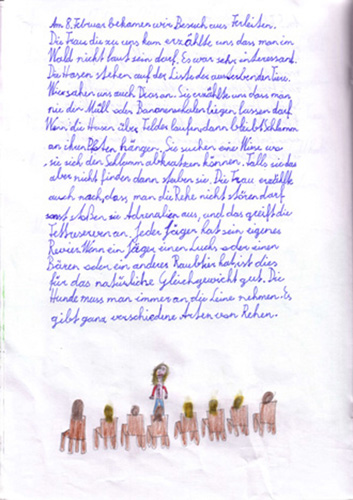 Am 8. Februar bekamen wir Besuch aus Ferleiten.
Die Frau die zu uns kam erzählte uns dass man im
Wald nicht laut sein darf. Es war sehr interessant.
Die Hasen stehen auf der Liste der aussterbenden Tiere.
Wir sahen uns auch Dias an. Sie erzählte uns dass man
nie den Müll oder Bananenschalen liegen lassen darf.
Wenn die Hasen über Felder laufen, dann bleibt Schlamm
an ihren Pfoten hängen. Sie suchen eine Wiese wo
sie sich den Schlamm abkratzen können. Falls sie das
aber nicht finden dann sterben sie. Die Frau erzählte
auch noch, dass man die Rehe nicht stören darf
sonst stoßen sie Adrenalien aus, und das greift die
Fettreserven an. Jeder Jäger hat sein eigenes
Revier. Wenn ein Jäger einen Luchs oder einen
Bären oder ein anderes Raubtier hat ist dies
für das natürliche Gleichgewicht gut. Die
Hunde muss man immer an die Leine nehmen. Es
gibt ganz verschiedene Arten von Rehen.